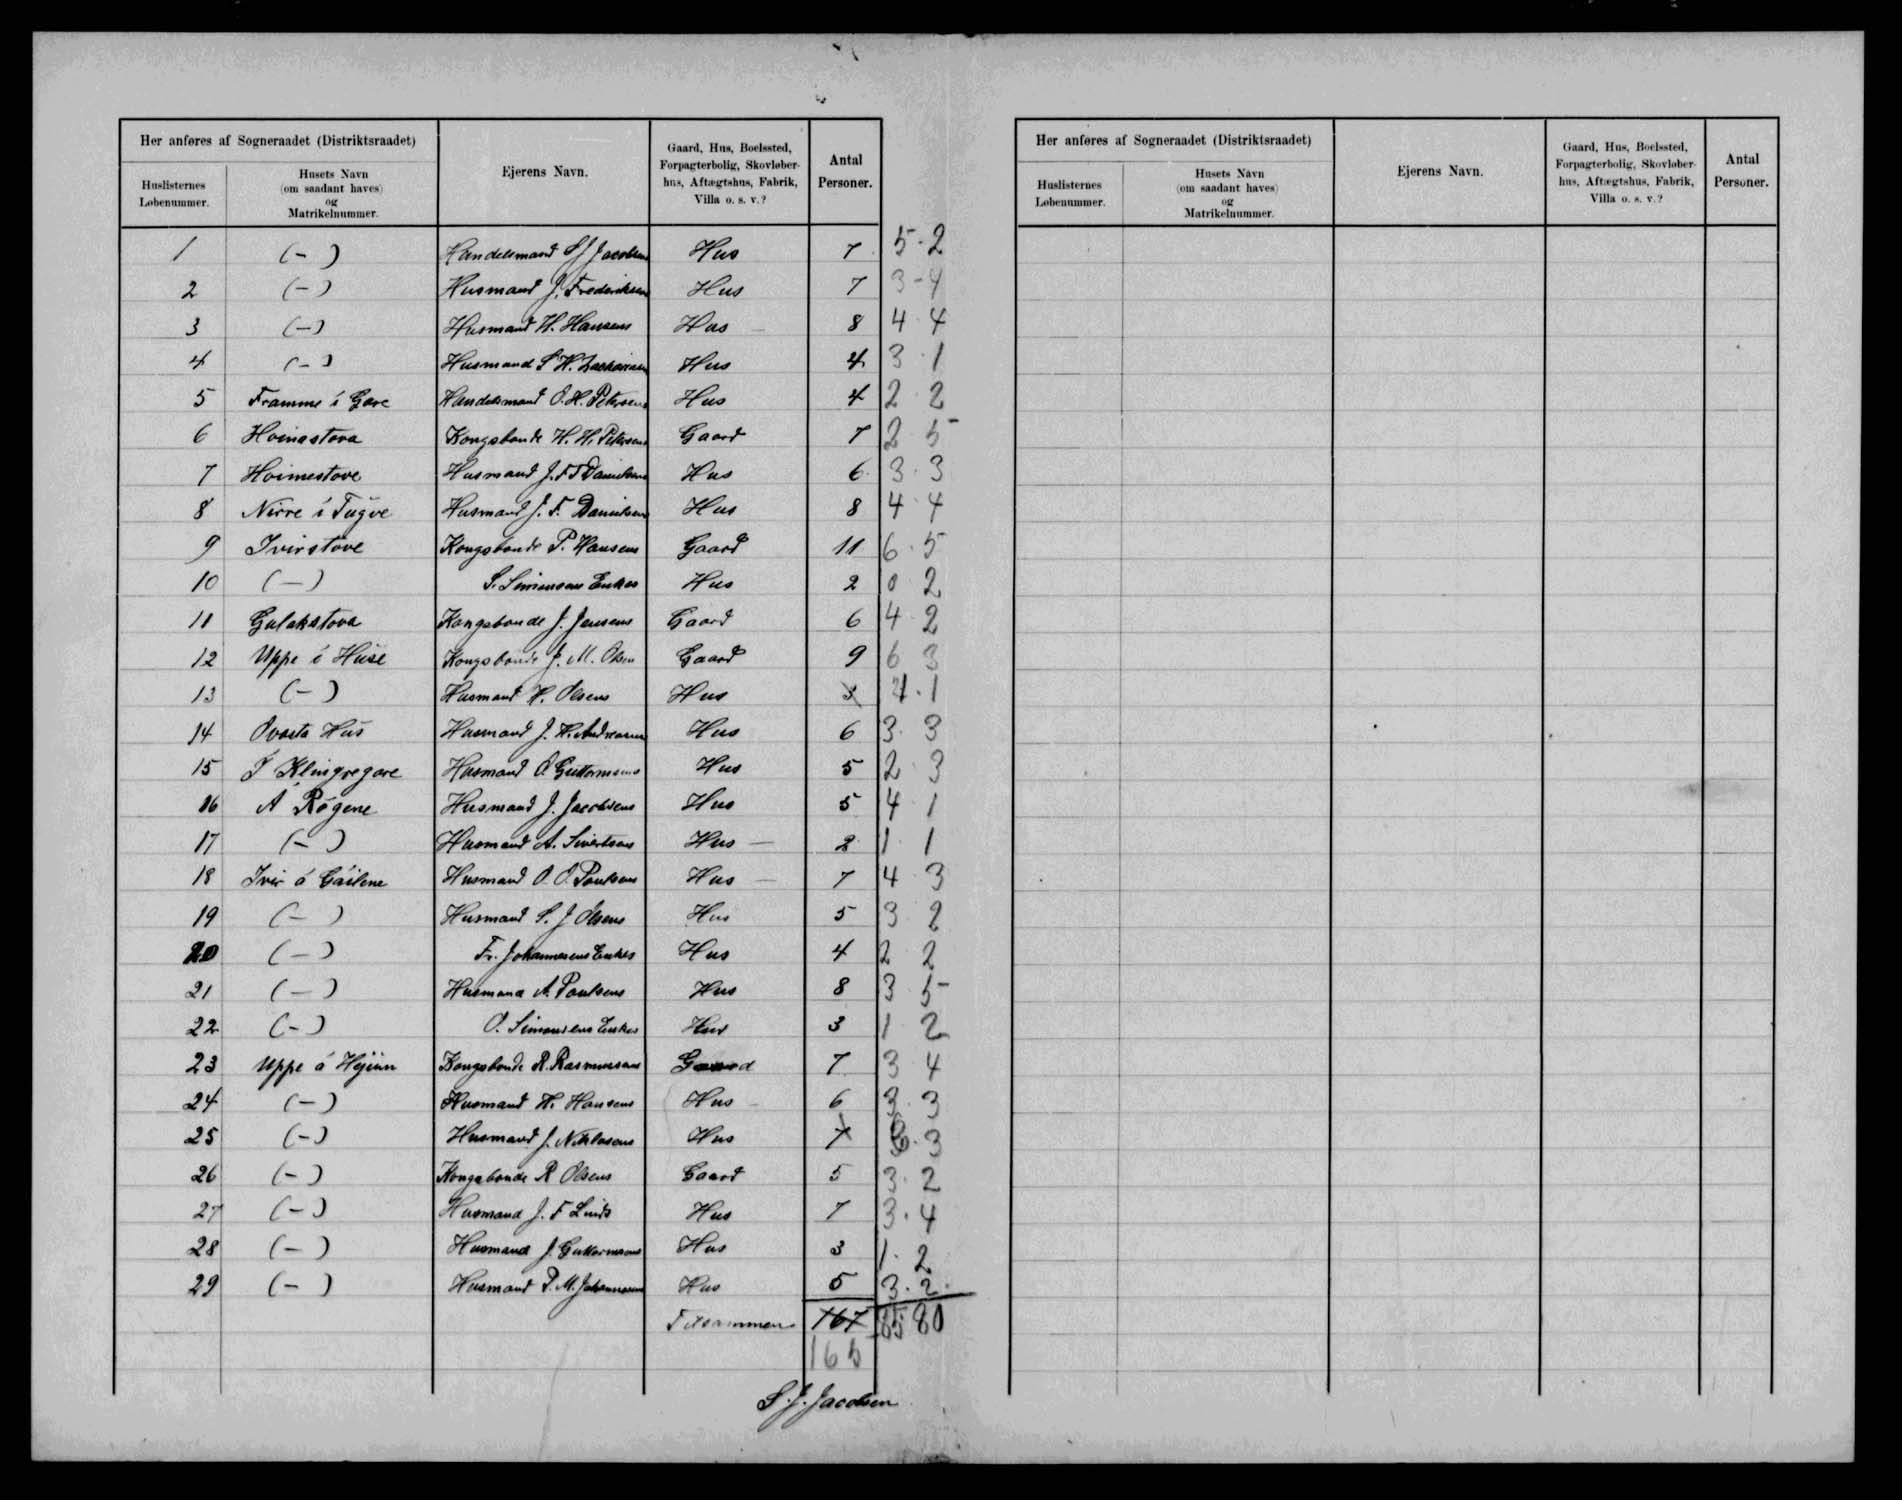 Her anføres af Sogneraadet (Distriktsraadet)
Huslisternes Løbenummer.
Husets Navn (om saadant haves) og Matrikelnummer.
Ejerens Navn.
Gaard, Hus, Boelssted, Forpagterbolig, Skovløberhus, Aftægtshus, Fabrik, Villa o. s. v.?
Antal Personer.
1 (-) Handelsmand S J Jacobsen Hus 7 5-2
2 (-) Husmand J. Frederiksen Hus 7 3-4
3 (-) Husmand H. Hansens Hus 8 4 4
4 (-) Husmand S H. Zachariasen Hus 4 3 1
5 Framme i Gare Handelsmand O. H. Petersens Hus 4 2 2
6 Hoinastova Kongsbonde H. H. Petersens Gaard 7 2 5
7 Hoimestove Husmand J. F. Danielsens Hus 6 3 3
8 Nirre i Tugve Husmand J. F. Danielsens Hus 8 4 4
9 Ivirstove Kongsbonde P. Hansens Gaard 11 6 5
10 (-) S. Simonsens Enkes Hus 2 0 2
11 Gulakstova Kongsbonde J. Jensens Gaard 6 4 2
12 Uppe i Húse Kongsbonde J. M. Olsen Gaard 9 6 3
13 (-) Husmand H. Olsens Hus 3 4.1
14 Ovasta Hús Husmand J. H. Andreasens Hus 6 3 3
15 Í Klingregare Husmand O. Guttormsens Hus 5 2 3
16 Á Røgene Husmand J. Jacobsens Hus 5 4 1
17 (-) Husmand A. Sivertsens Hus 2 1 1
18 Ivir á Gáilene Husmand O. O. Poulsens Hus 7 4 3
19 (-) Husmand S. J Olsens Hus 5 3 2
20 (-) Fr. Johannesens Enkes Hus 4 2 2
21 (-) Husmand A. Poulsens Hus 8 3 5
22 (-) O. Simonsens Enkes Hus 3 1 2
23 Uppe á Hejun Kongsbonde R. Rasmussens Gaard 7 3 4
24 (-) Husmand H. Hansens Hus 6 3 3
25 (-) Husmand J. Niklasens Hus 7 3
26 (-) Kongsbonde R Olsens Gaard 5 3. 2
27 (-) Husmand J. F Linds Hus 7 3. 4
28 (-) Husmand J. Guttormsens Hus 3 1. 2
29 (-) Husmand P. M. Johannesens Hus 5 3. 2
Tilsammen 167 85 80
165
S. J. Jacobsen
Her anføres af Sogneraadet (Distriktsraadet)
Huslisternes Løbenummer.
Husets Navn (om saadant haves) og Matrikelnummer.
Ejerens Navn.
Gaard, Hus, Boelssted, Forpagterbolig, Skovløberhus, Aftægtshus, Fabrik, Villa o. s. v.?
Antal Personer.